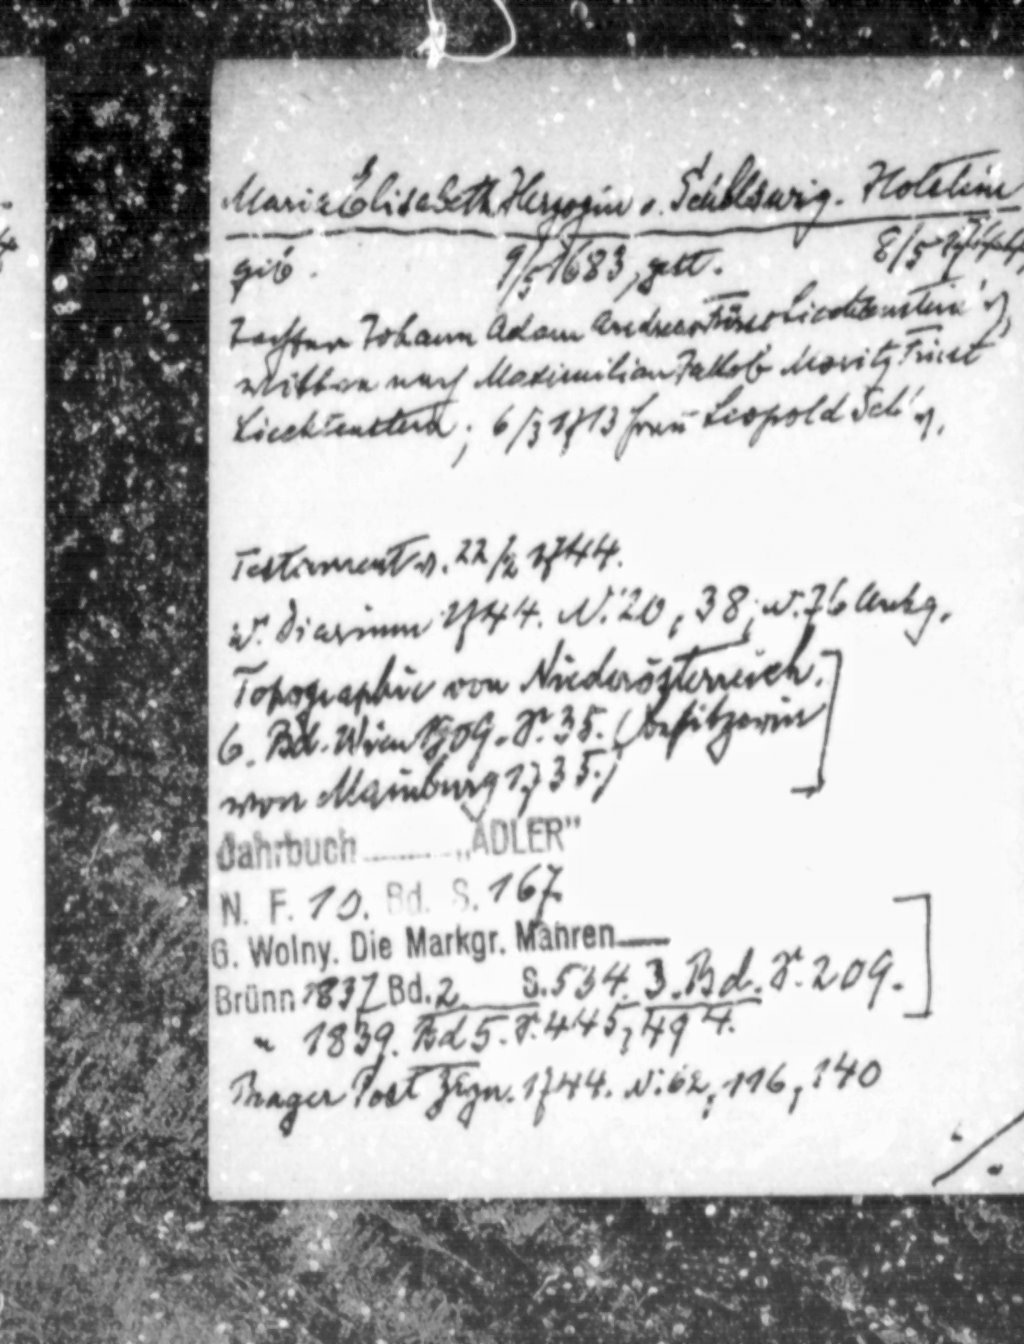 Maria Elisabeth Herzogin v. Schleswig-Holstein
geb. 9/5 1683, gest. 8/5 1744
Tochter Johann Adam Andreas Fürst Liechtenstein's,
Witwe nach Maximilian Jakob Moritz Fürst
Liechtenstein; 6/3 1713 Frau Leopold Sch's,
Testament v. 22/2 1744.
W. Diarium 1744. N. 20, 38, N. 76 Anhg.
Topographie von Niederösterreich.
6. Bd. Wien 1909. S. 35. (Besitzerin
von Mainburg 1735.)
Jahrbuch „ADLER”
N. F. 10. Bd. S. 167.
G. Wolny. Die Markgr. Mähren
Brünn 1837 Bd. 2 S. 534. 3. Bd. S. 209.
" 1839. Bd 5. S. 445, 494.
Prager Post Ztgn. 1744. N. 62, 116, 140